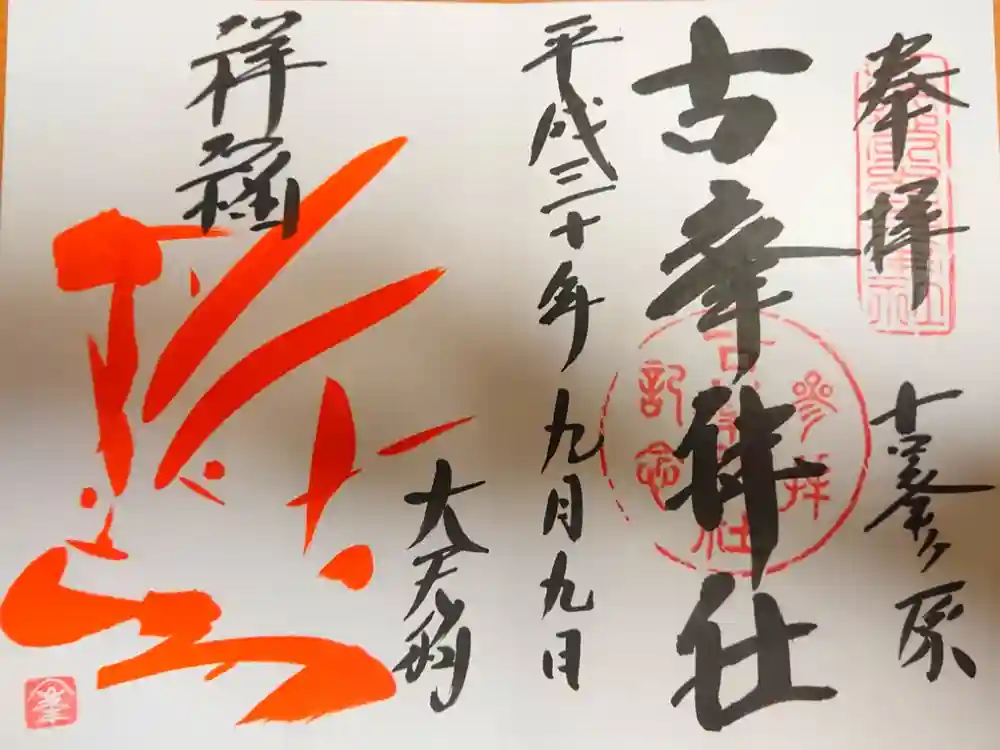 奉拝
古峯ヶ原
古峯神社
参拝
記念
古峯神社
平成三十年九月九日
大天狗